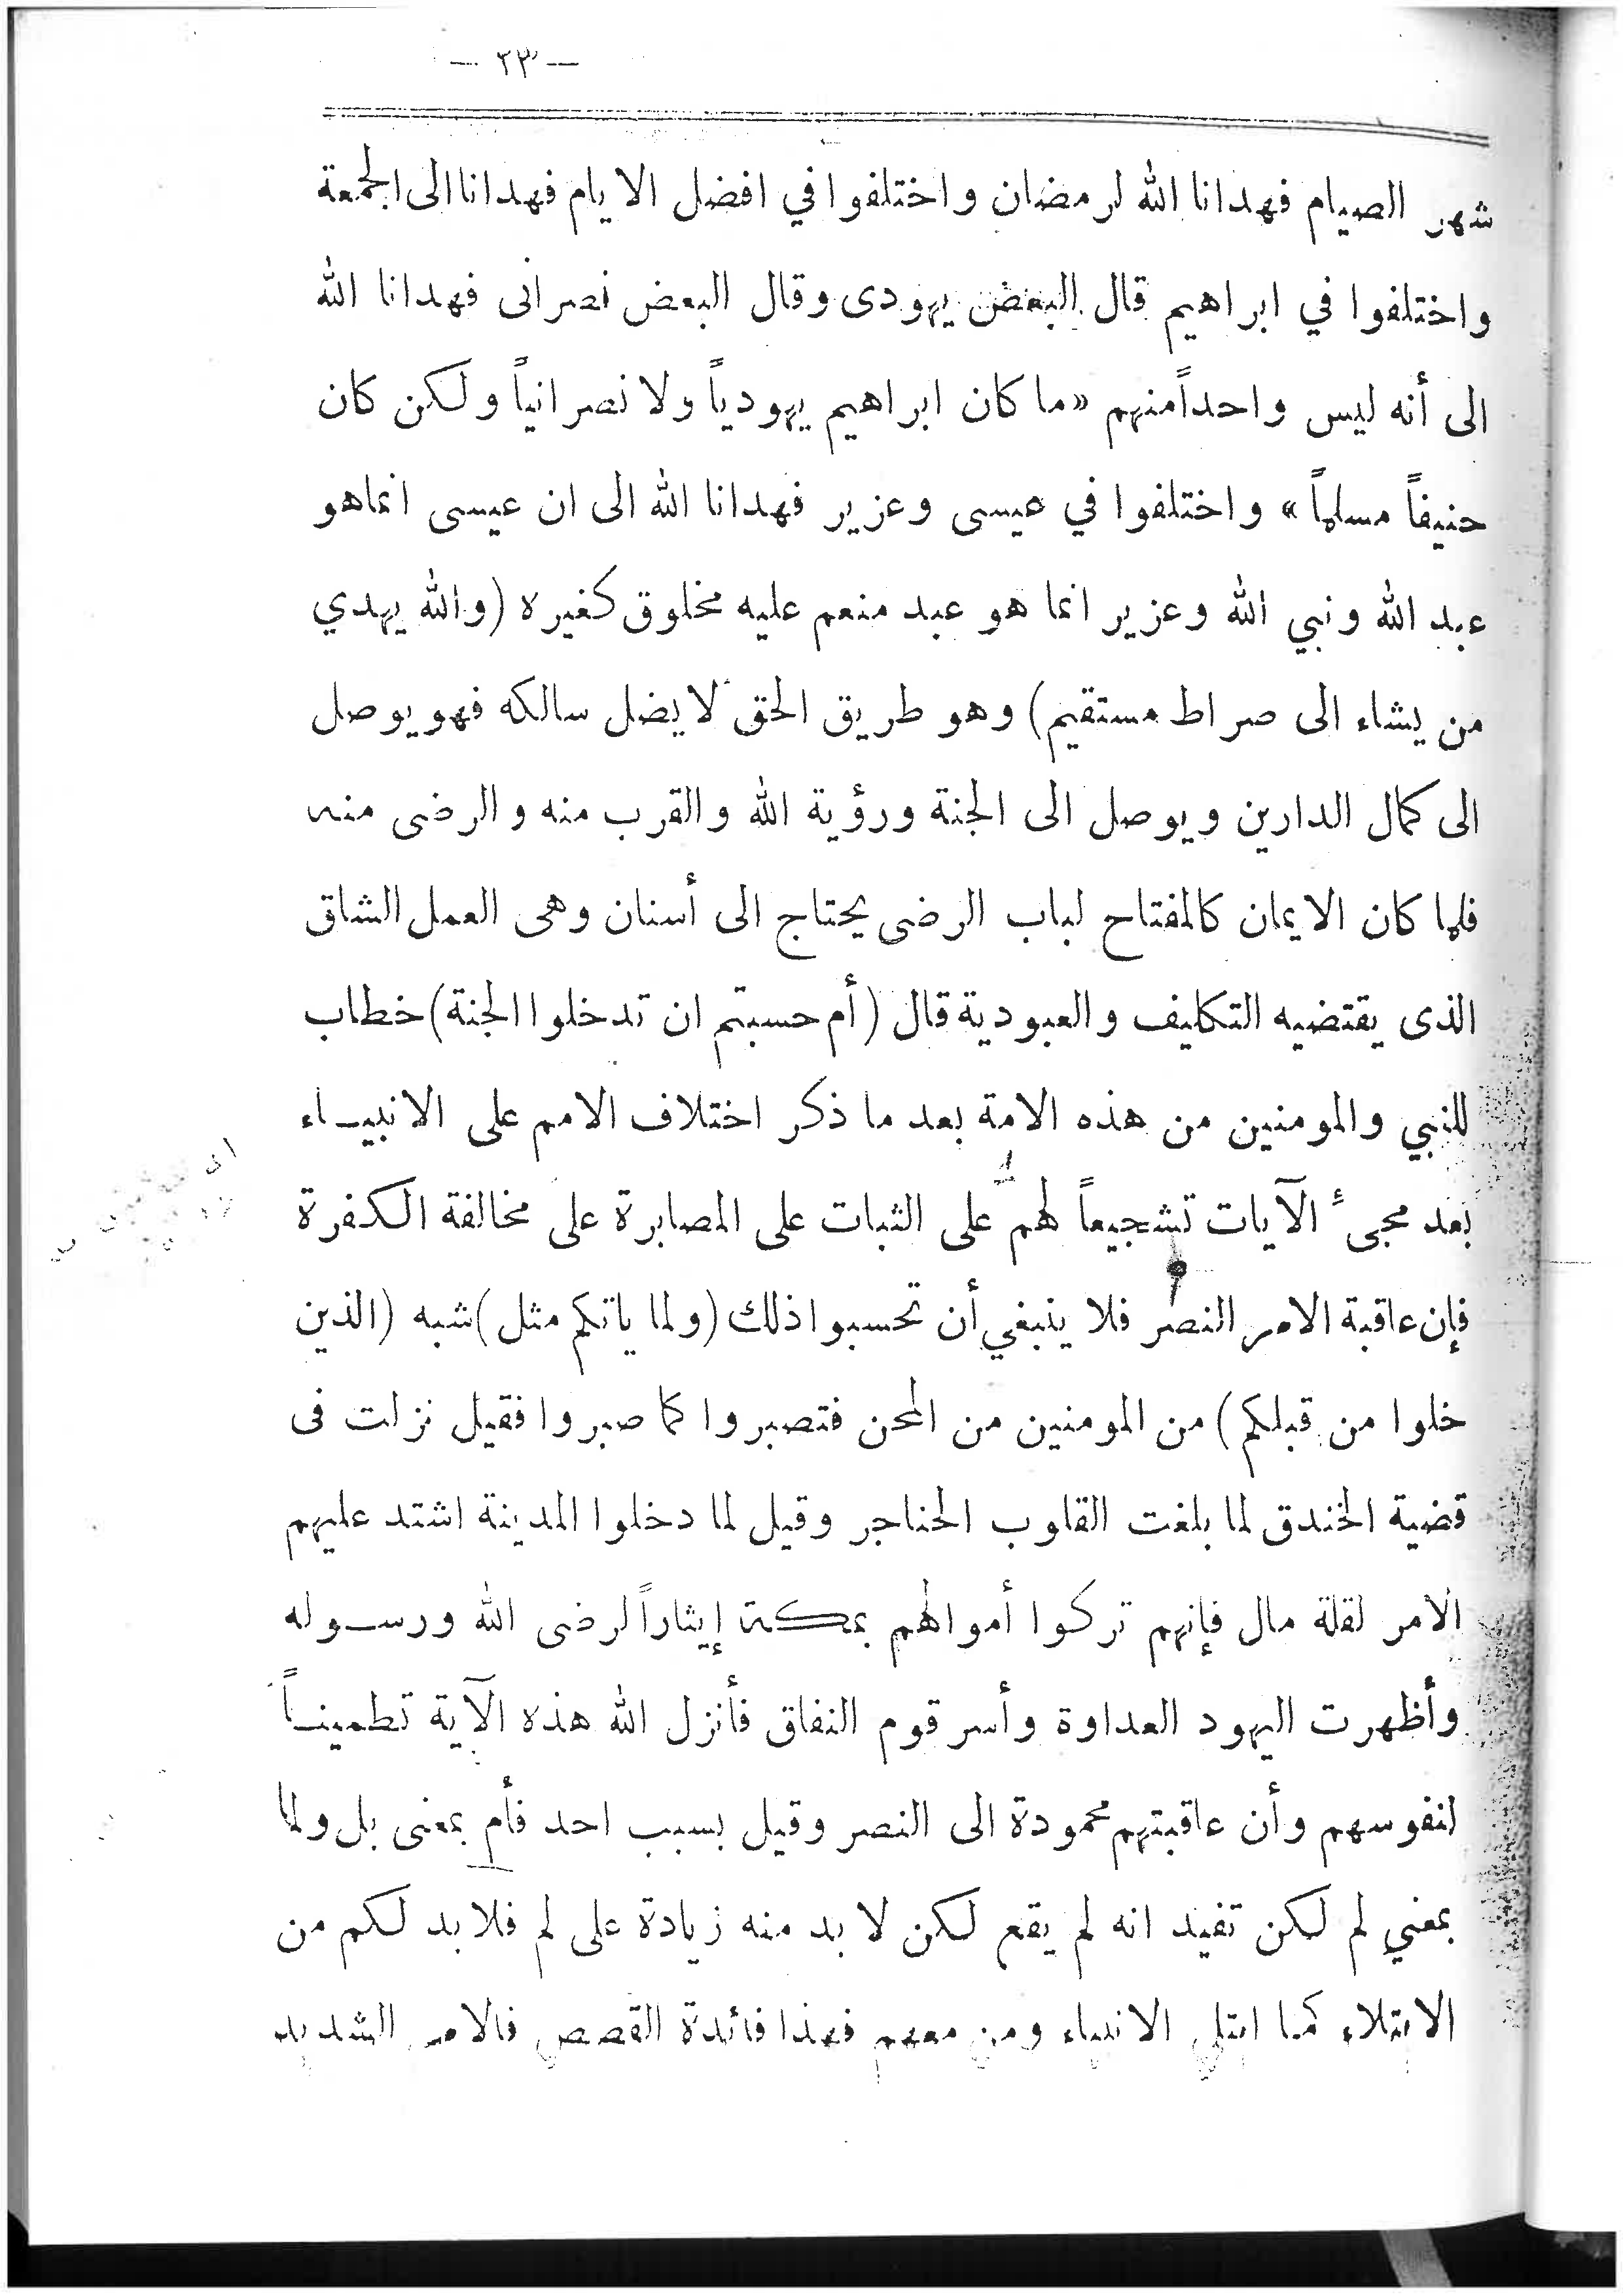 — ٢٣ —
شهر الصيام فهدانا الله لرمضان واختلفوا في افضل الايام فهدانا الى الجمعة
واختلفوا في ابراهيم قال البعض يهودى وقال البعض نصرانى فهدانا الله
الى أنه ليس واحداً منهم «ما كان ابراهيم يهودياً ولا نصرانياً ولكن كان
حنيفاً مسلماً» واختلفوا في عيسى وعزير فهدانا الله الى ان عيسى انما هو
عبد الله ونبي الله وعزير انما هو عبد منعم عليه مخلوق كغيره (والله يهدي
من يشاء الى صراط مستقيم) وهو طريق الحق لا يضل سالكه فهو يوصل
الى كمال الدارين ويوصل الى الجنة ورؤية الله والقرب منه والرضى منه
فلما كان الايمان كالمفتاح لباب الرضى يحتاج الى أسنان وهى العمل الشاق
الذى يقتضيه التكليف والعبودية قال (أم حسبتم ان تدخلوا الجنة) خطاب
للنبي والمومنين من هذه الامة بعد ما ذكر اختلاف الامم على الانبيـاء
بعد مجىء الآيات تشجيعاً لهم على الثبات على المصابرة على مخالفة الكفرة
فإن عاقبة الامر النصر فلا ينبغي أن تحسبوا ذلك (ولما ياتكم مثل) شبه (الذين
خلوا من قبلكم) من المومنين من المحن فتصبروا كما صبروا فقيل نزلت فى
قضية الخندق لما بلغت القلوب الحناجر وقيل لما دخلوا المدينة اشتد عليهم
الامر لقلة مال فإنهم تركوا أموالهم بمكة إيثاراً لرضى الله ورسـوله
وأظهرت اليهود العداوة وأسر قوم النفاق فأنزل الله هذه الآية تطمينـاً
لنفوسهم وأن عاقبتهم محمودة الى النصر وقيل بسبب احد فأم بمعنى بل ولما
بمعني لم لكن تفيد انه لم يقع لكن لا بد منه زيادة على لم فلا بد لكم من
الابتلاء كما ابتلي الانبياء ومن معهم فهذا فائدة القصص فالامر الشديد